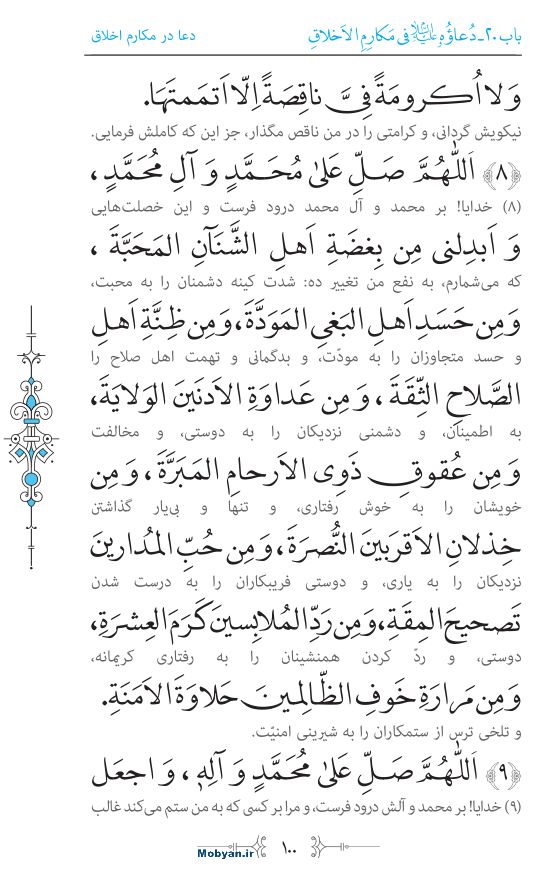 باب ۲۰ـ دُعاؤُهُ عليه‌السلام فی مَکارِمِ الاَخلاقِ
دعا در مکارم اخلاق
وَ لا اُکرومَةً فِیَّ ناقِصَةً اِلّا اَتمَمتَهَا.
نیکویش گردانی، و کرامتی را در من ناقص مگذار، جز این که کاملش فرمایی.
﴿۸﴾ اَللّٰهُمَّ صَلِّ عَلیٰ مُحَمَّدٍ وَ آلِ مُحَمَّدٍ ،
(۸) خدایا! بر محمد و آل محمد درود فرست و این خصلت‌هایی
وَ اَبدِلنی مِن بِغضَةِ اَهلِ الشَّنَآنِ المَحَبَّةَ ،
که می‌شمارم، به نفع من تغییر ده: شدت کینه دشمنان را به محبت،
وَ مِن حَسَدِ اَهلِ البَغیِ المَوَدَّةَ، وَ مِن ظِنَّةِ اَهلِ
و حسد متجاوزان را به مودّت، و بدگمانی و تهمت اهل صلاح را
الصَّلاحِ الثِّقَةَ ، وَ مِن عَداوَةِ الاَدنَینَ الوَلایَةَ،
به اطمینان، و دشمنی نزدیکان را به دوستی، و مخالفت
وَ مِن عُقوقِ ذَوِی الاَرحامِ المَبَرَّةَ ، وَ مِن
خویشان را به خوش رفتاری، و تنها و بی‌یار گذاشتن
خِذلانِ الاَقرَبینَ النُّصرَةَ ، وَ مِن حُبِّ المُدارینَ
نزدیکان را به یاری، و دوستی فریبکاران را به درست شدن
تَصحیحَ المِقَةِ، وَ مِن رَدِّ المُلابِسینَ کَرَمَ العِشرَةِ،
دوستی، و ردّ کردن همنشینان را به رفتاری کریمانه،
وَ مِن مَرارَةِ خَوفِ الظّالِمینَ حَلاوَةَ الاَمَنَةِ.
و تلخی ترس از ستمکاران را به شیرینی امنیّت.
﴿۹﴾ اَللّٰهُمَّ صَلِّ عَلیٰ مُحَمَّدٍ وَ آلِهٖ ، وَ اجعَل
(۹) خدایا! بر محمد و آلش درود فرست، و مرا بر کسی که به من ستم می‌کند غالب
۱۰۰
Mobyan.ir